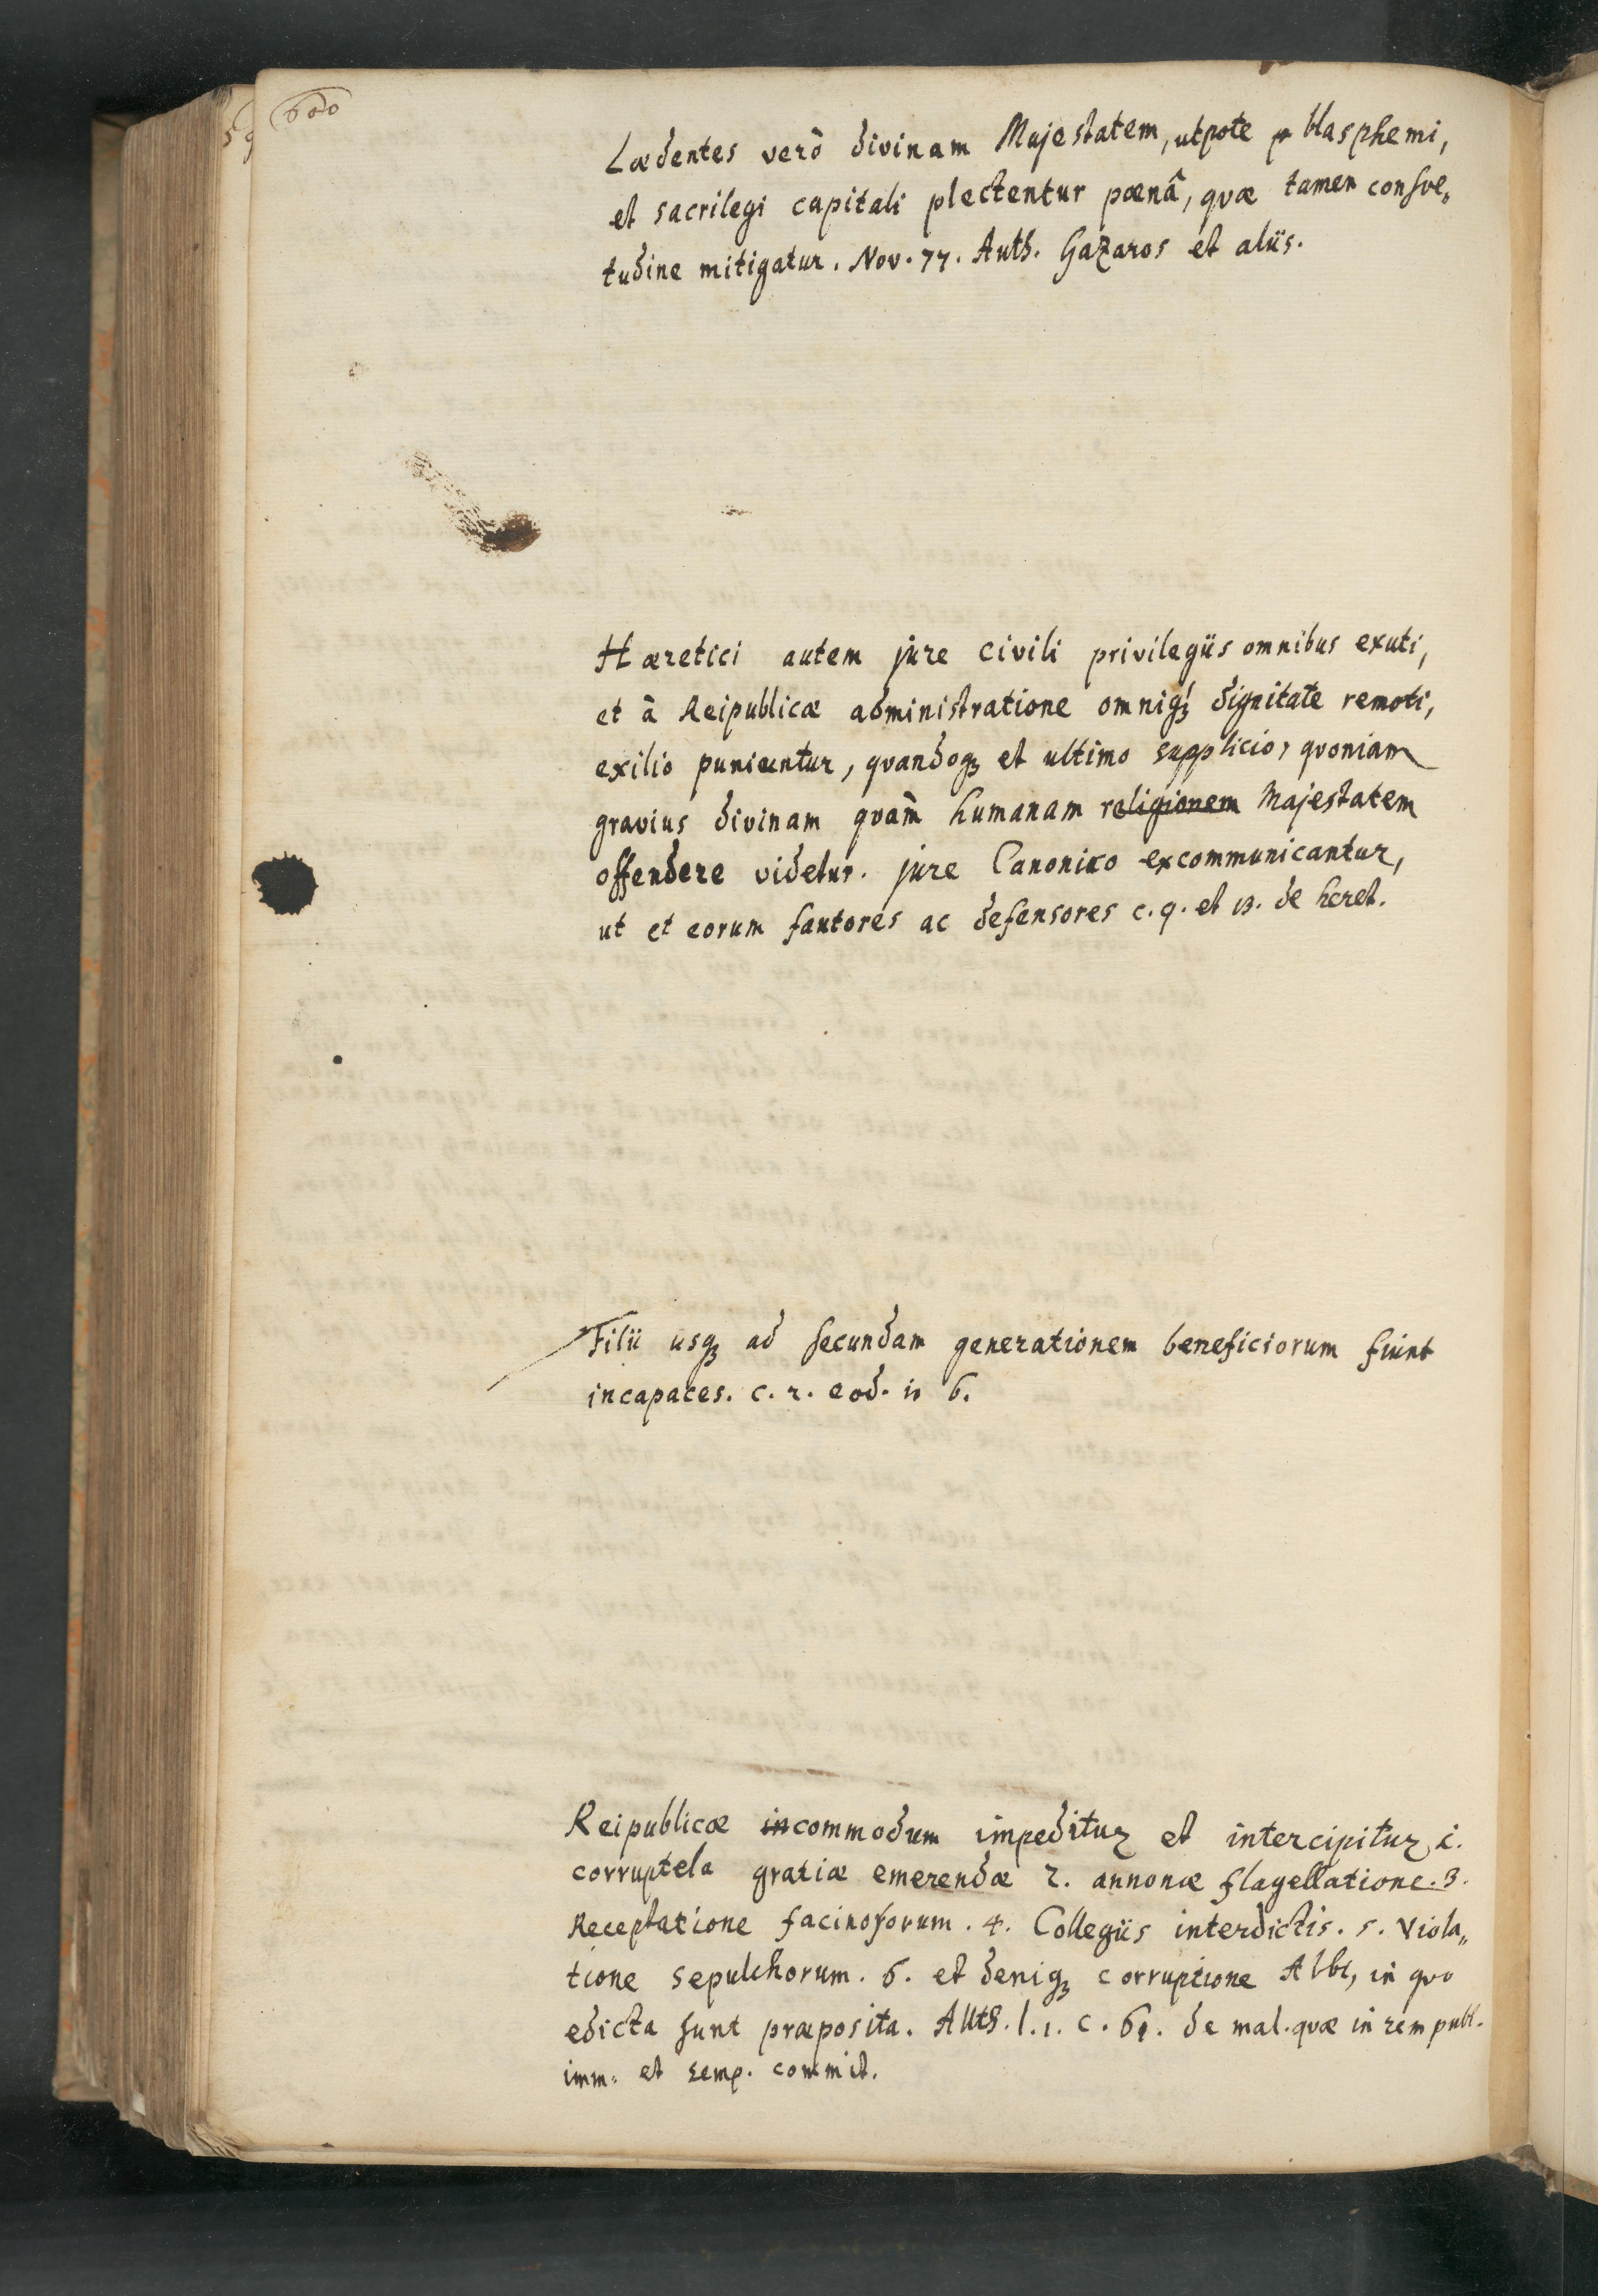 600
Lædentes verò divinam Majestatem, utpote blasphemi,
et sacrilegi capitali plectentur pœnâ, qvæ tamen consve„
tudine mitigatur. Nov. 77. Auth. Gazaros et aliis.
Hæretici autem jure civili privilegiis omnibus exuti,
et à Reipublicæ administratione omniq́ꝫ dignitate remoti,
exilio puniuntur, qvandoqꝫ et ultimo supplicio, qvoniam
gravius divinam qvàm humanam religionem Majestatem
offendere videtur. jure Canonico excommunicantur,
ut et eorum fautores ac defensores c. 9. et 13. de heret.
Filii usqꝫ ad secundam generationem beneficiorum fiunt
incapaces. c. 2. eod. in 6.
Reipublicæ incommodum impeditur et intercipitur 1.
corruptela gratiæ emerendæ 2. annonæ flagellatione. 3.
Receptatione facinosorum. 4. Collegiis interdictis. 5. Viola„
tione sepulchorum. 6. et deniqꝫ corruptione Albi, in qvo
edicta sunt præposita. Auth. l. 1. c. 61. de mal. qvæ in rem publ.
imm. et temp. commit.